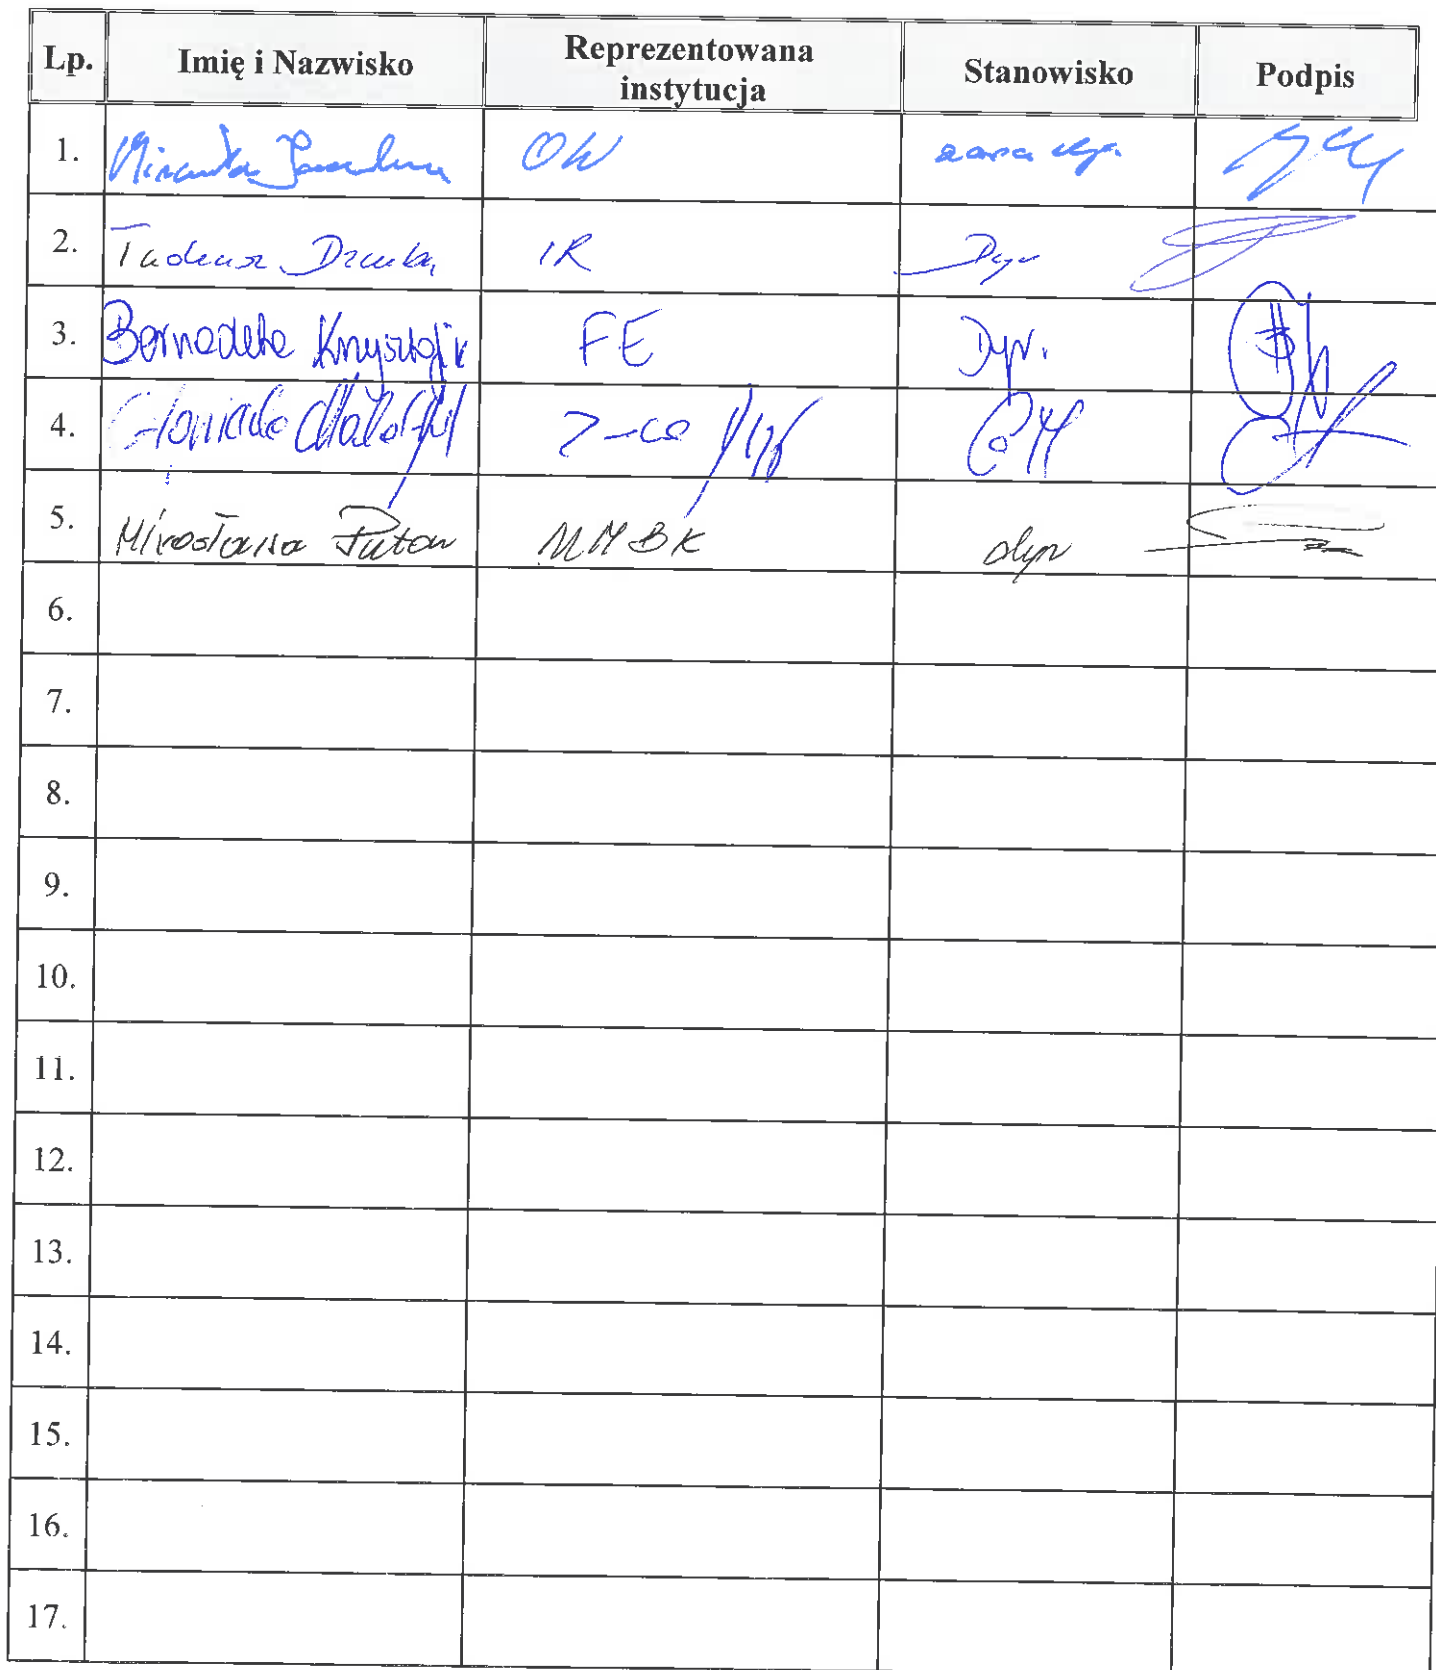 Lp. Imię i Nazwisko Reprezentowana instytucja Stanowisko Podpis
1. OW
2. Tadeusz IR Dyr
3. Bernadeta FE Dyr.
4. z-ca
5. Mirosława Puton MMBK dyr
6.
7.
8.
9.
10.
11.
12.
13.
14.
15.
16.
17.